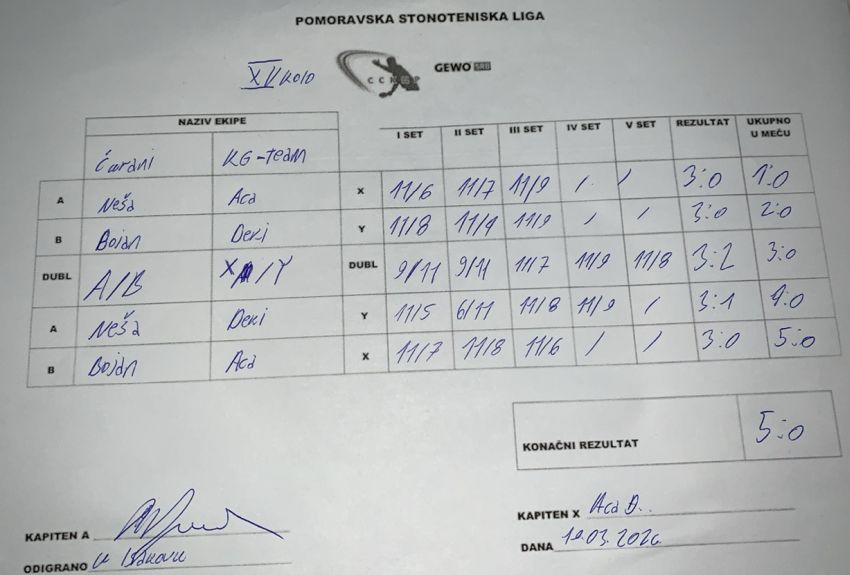 POMORAVSKA STONOTENISKA LIGA
XV KOLO
GEWO SRB
NAZIV EKIPE I SET II SET III SET IV SET V SET REZULTAT UKUPNO U MEČU
Čarani KG-team
A Neša Aca X 11/6 11/7 11/9 / / 3:0 1:0
B Bojan Deki Y 11/8 11/9 11/9 / / 3:0 2:0
DUBL A/B X/Y DUBL 9/11 9/11 11/7 11/9 11/8 3:2 3:0
A Neša Deki Y 11/5 6/11 11/8 11/9 / 3:1 4:0
B Bojan Aca X 11/7 11/8 11/6 / / 3:0 5:0
KONAČNI REZULTAT 5:0
KAPITEN A
KAPITEN X Aca Đ.
ODIGRANO
DANA 03.2026.